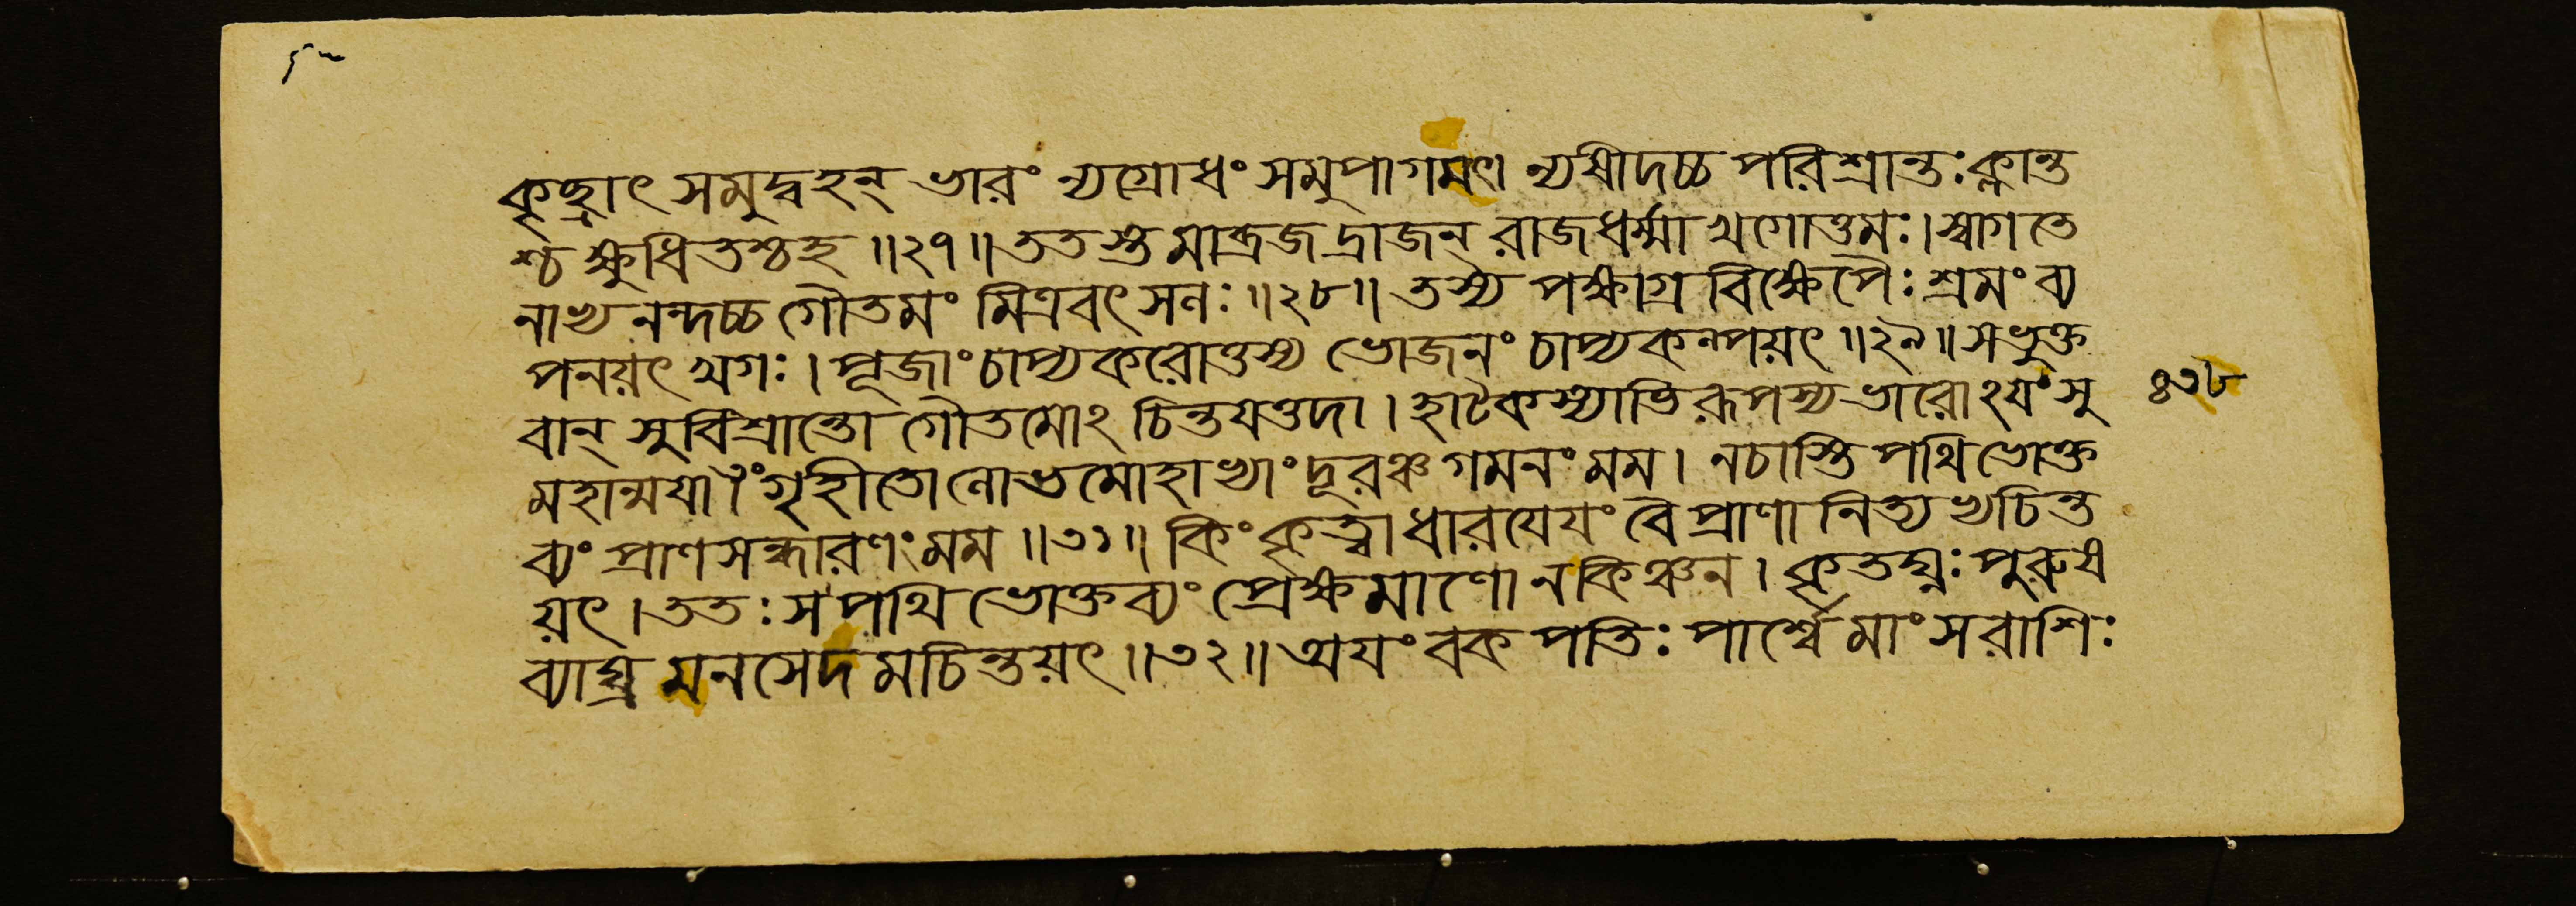 কৃচ্ছ্রাৎ সমুদ্বহন্ ভারং ন্যগ্রোধং সমুপাগমৎ। ন্যষীদচ্চ পরিশ্রান্তঃ ক্লান্ত
শ্চ ক্ষুধিতশ্চহ ॥২৭॥ ততস্তমাভ্রজদ্রাজন্ রাজধর্ম্মা খগোত্তমঃ। স্বাগতে
নাভ্যনন্দচ্চ গৌতমং মিত্রবৎসলঃ ॥২৮॥ তস্য পক্ষাগ্রবিক্ষেপৈঃ শ্রমং ব্য
পনয়ৎ খগঃ। পূজাং চাপ্যকরোত্তস্য ভোজনং চাপ্যকল্পয়ৎ ॥২৯॥ সভুক্ত
বান্ সুবিশ্রান্তো গৌতমোঽচিন্তযত্তদা। হাটকস্যাভিরূপস্য ভারোঽযং সু
মহান্ময়া। গৃহীতো লোভমোহাভ্যাং দূরঞ্চ গমনং মম। নচাস্তি পথি ভোক্ত
ব্যং প্রাণসন্ধারণং মম ॥৩১॥ কিং কৃত্বা ধারযেযং বৈ প্রাণানিত্যভ্যচিন্ত
য়ৎ। ততঃ স পথি ভোক্তব্যং প্রেক্ষমাণো ন কিঞ্চন। কৃতঘ্নঃ পুরুষ
ব্যাঘ্র মনসেদমচিন্তয়ৎ ॥৩২॥ অযং বকপতিঃ পার্শ্বে মাংসরাশিঃ
৪৩৮